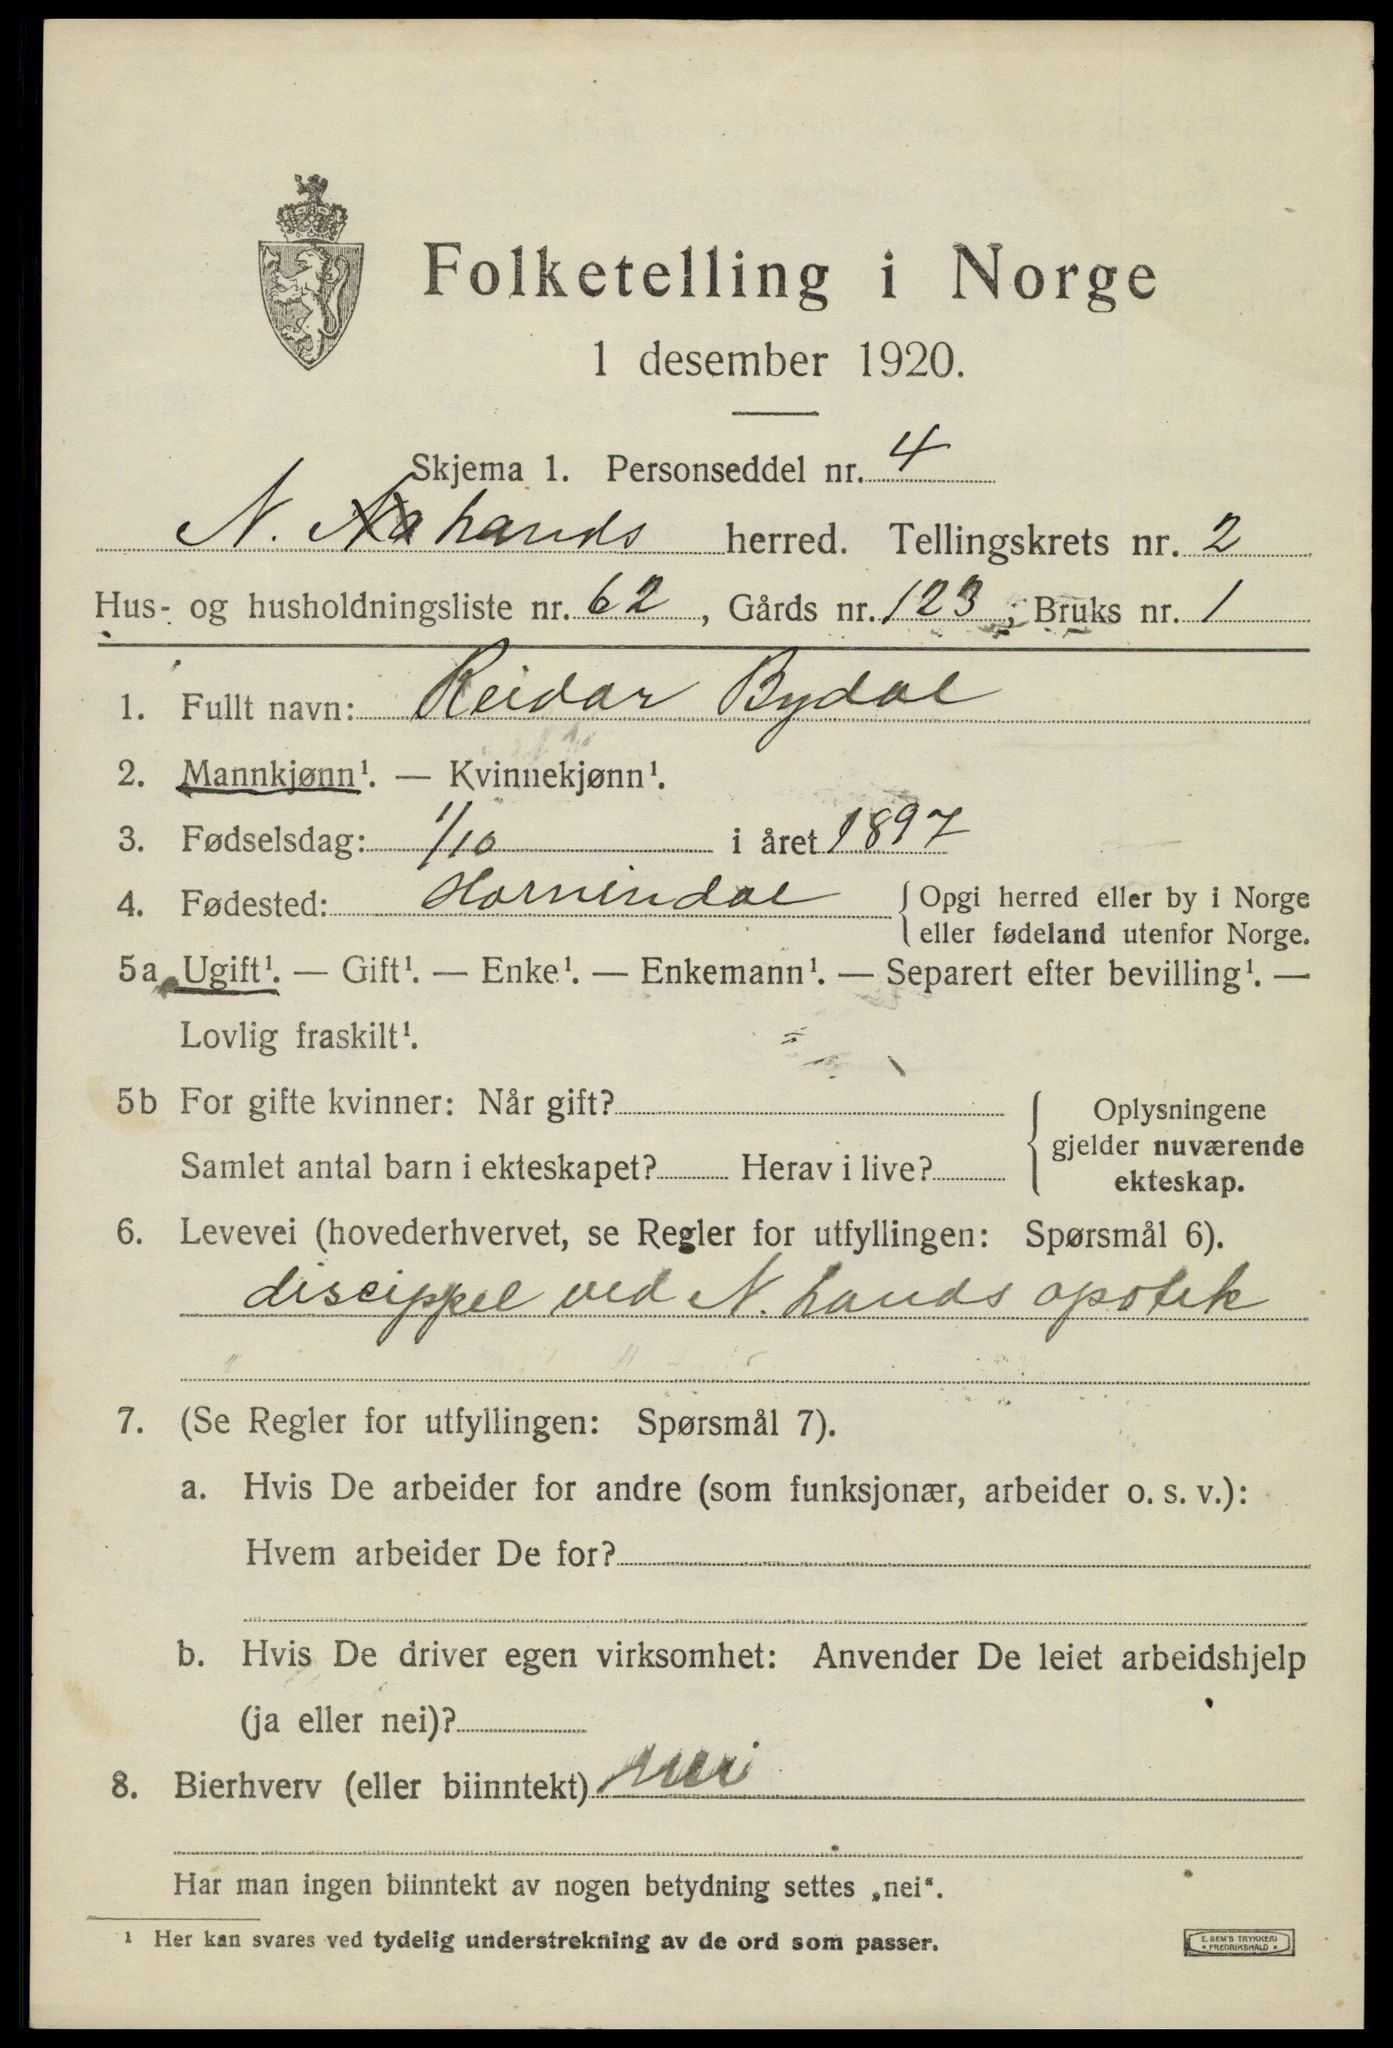 Folketelling i Norge
1 desember 1920.
Skjema 1. Personseddel nr. 4
N. Lands herred. Tellingskrets nr. 2
Hus- og husholdningsliste nr. 62, Gårds nr. 123, Bruks nr. 1
1. Fullt navn: Reidar Bydal
2. Mannkjønn¹. — Kvinnekjønn¹.
3. Fødselsdag: 1/10 i året 1897
4. Fødested: Hornindal { Opgi herred eller by i Norge
eller fødeland utenfor Norge.
5a Ugift¹. — Gift¹. — Enke¹. — Enkemann¹. — Separert efter bevilling¹. —
Lovlig fraskilt¹.
5b For gifte kvinner: Når gift?
Samlet antal barn i ekteskapet? Herav i live?
{ Oplysningene
gjelder nuværende
ekteskap.
6. Levevei (hovederhvervet, se Regler for utfyllingen: Spørsmål 6).
discippel ved N. Lands apotek
7. (Se Regler for utfyllingen: Spørsmål 7).
a. Hvis De arbeider for andre (som funksjonær, arbeider o. s. v.):
Hvem arbeider De for?
b. Hvis De driver egen virksomhet: Anvender De leiet arbeidshjelp
(ja eller nei)?
8. Bierhverv (eller biinntekt) nei
Har man ingen biinntekt av nogen betydning settes „nei“.
¹ Her kan svares ved tydelig understrekning av de ord som passer.
E. SEM'S TRYKKERI
* FREDRIKSHALD *